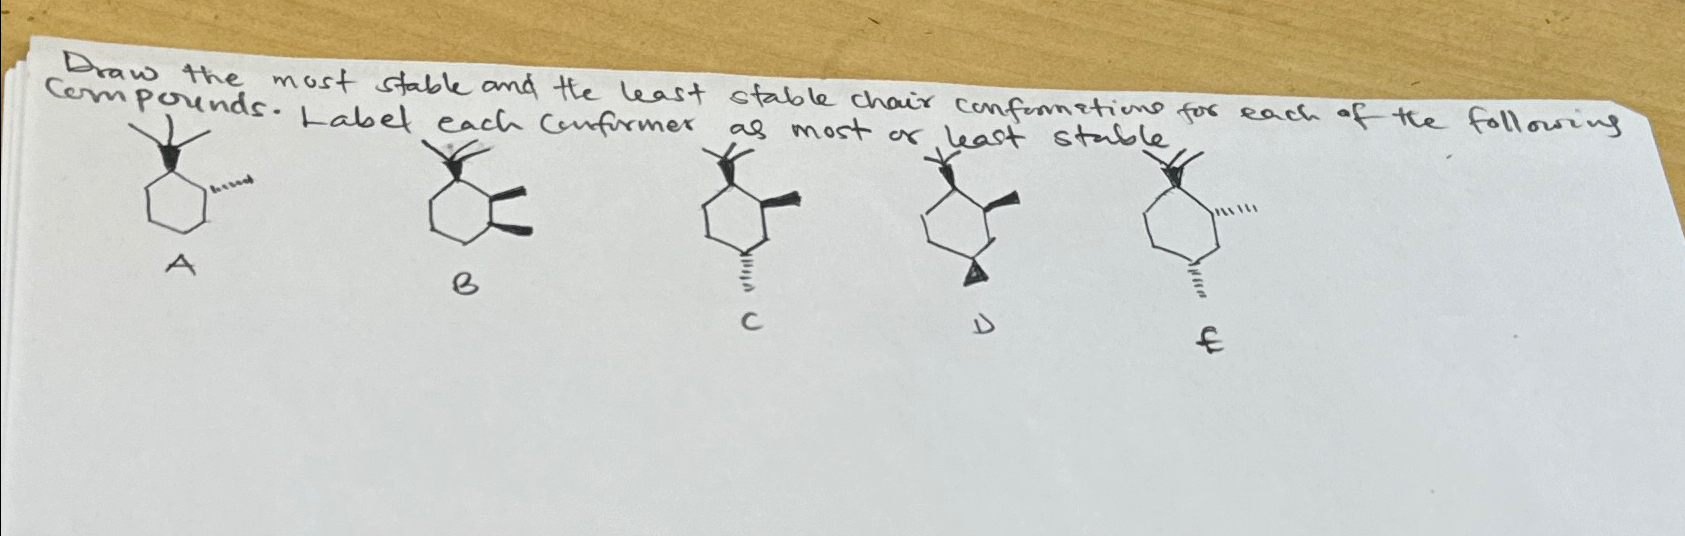 Draw the most stable and the least stable chair conformations for each of the following
Compounds. Label each Conformer as most or least stable
A
B
C
D
E